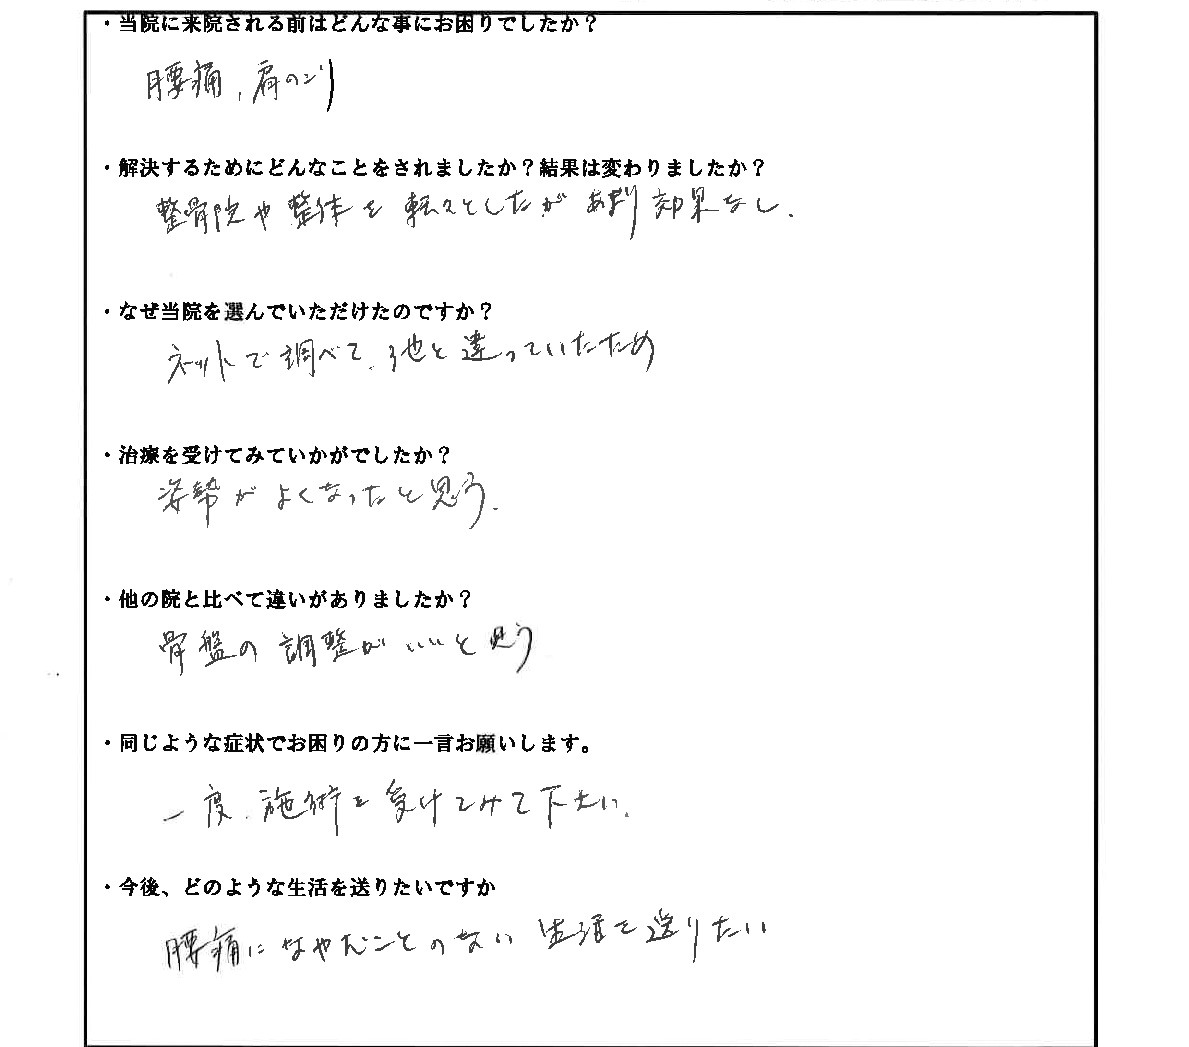 ・当院に来院される前はどんな事にお困りでしたか？
腰痛、肩のこり
・解決するためにどんなことをされましたか？結果は変わりましたか？
整骨院や整体を転々としたがあまり効果なし.
・なぜ当院を選んでいただけたのですか？
ネットで調べて、他と違っていたため
・治療を受けてみていかがでしたか？
姿勢がよくなったと思う.
・他の院と比べて違いがありましたか？
骨盤の調整がいいと思う
・同じような症状でお困りの方に一言お願いします。
一度、施術を受けてみて下さい.
・今後、どのような生活を送りたいですか
腰痛になやむことのない生活を送りたい